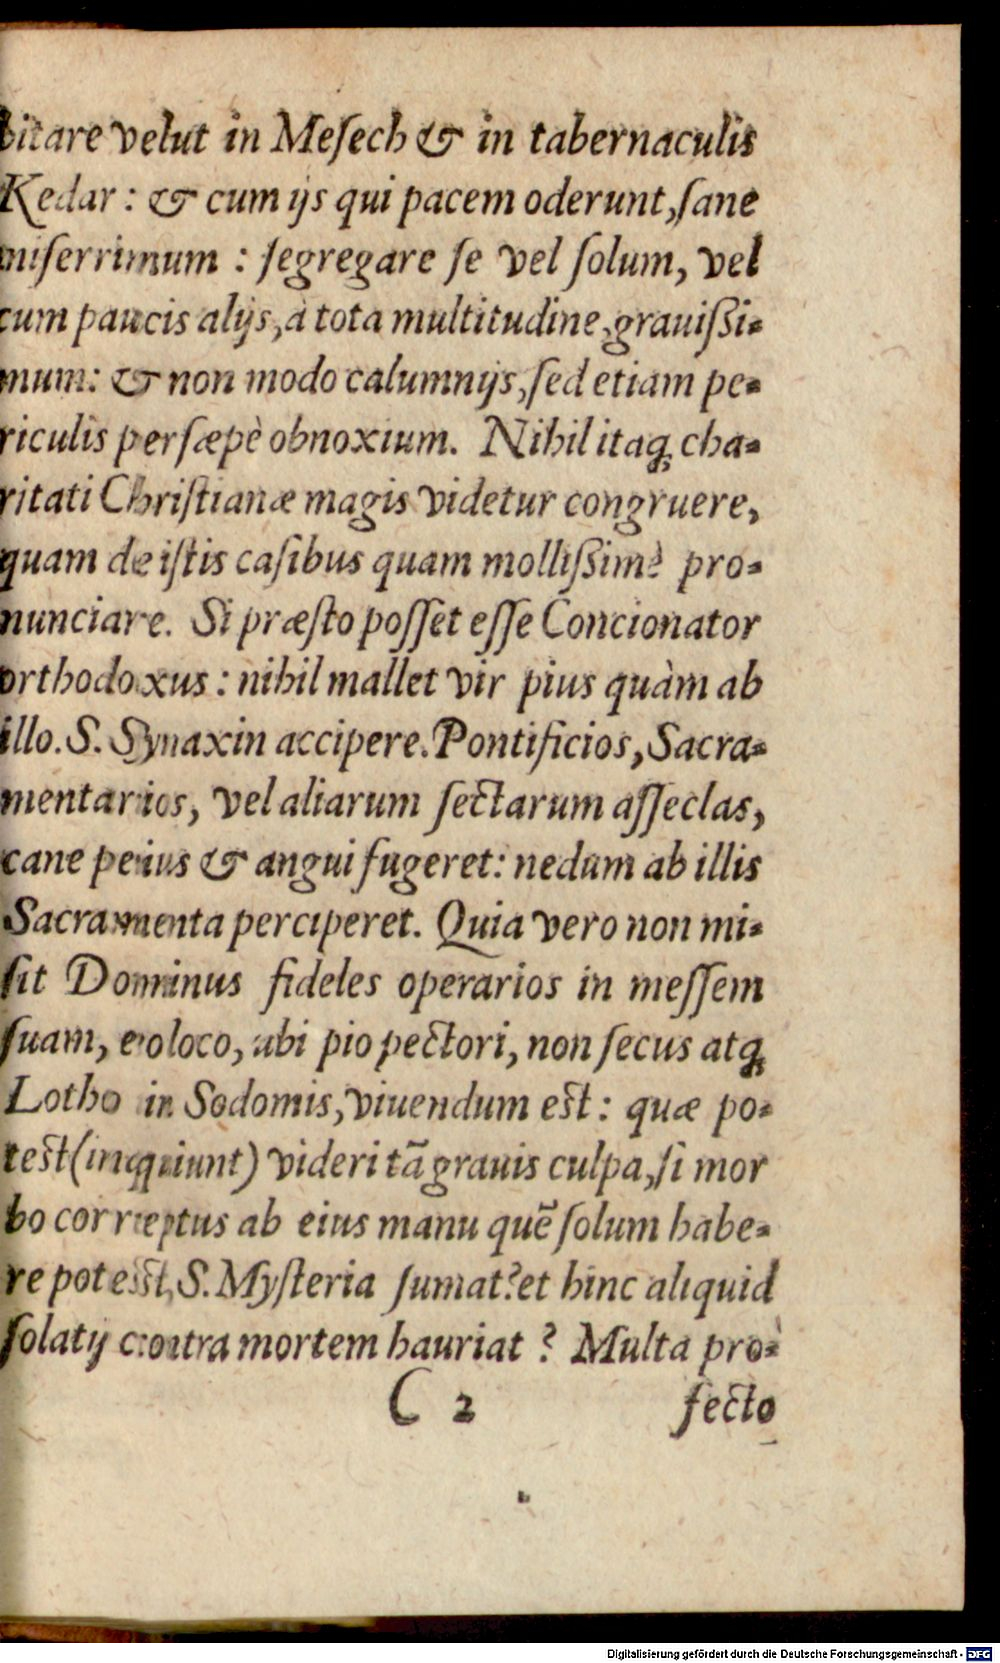 bitare velut in Meſech & in tabernaculis
Kedar: & cum ijs qui pacem oderunt, ſane
miſerrimum: ſegregare ſe vel ſolum, vel
cum paucis alijs, à tota multitudine, grauiſsi-
mum: & non modo calumnijs, ſed etiam pe-
riculis perſæpè obnoxium. Nihil itaq; cha-
ritati Chriſtianæ magis videtur congruere,
quam de iſtis caſibus quam molliſsimè pro-
nunciare. Si præſto poſſet eſſe Concionator
orthodoxus: nihil mallet vir pius quàm ab
illo. S. Synaxin accipere. Pontificios, Sacra-
mentarios, vel aliarum ſectarum aſſeclas,
cane peius & angui fugeret: nedum ab illis
Sacramenta perciperet. Quia vero non mi-
ſit Dominus fideles operarios in meſſem
ſuam, eo loco, ubi pio pectori, non ſecus atq;
Lotho in Sodomis, viuendum eſt: quæ po-
teſt (inquiunt) videri tã grauis culpa, ſi mor
bo correptus ab eius manu quẽ ſolum habe-
re poteſt, S. Myſteria ſumat? et hinc aliquid
ſolatij contra mortem hauriat? Multa pro-
C 2 fecto
Digitalisierung gefördert durch die Deutsche Forschungsgemeinschaft - DFG